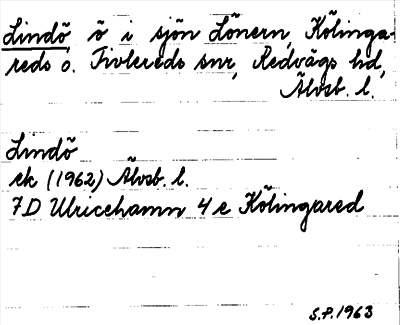 Lindö, ö i sjön Lönern, Kölinga-
reds o. Tivlereds snr, Redvägs hd,
Älvsb. l.
Lindö
ek (1962) Älvsb. l.
7D Ulricehamn 4e Kölingared
S.P. 1963